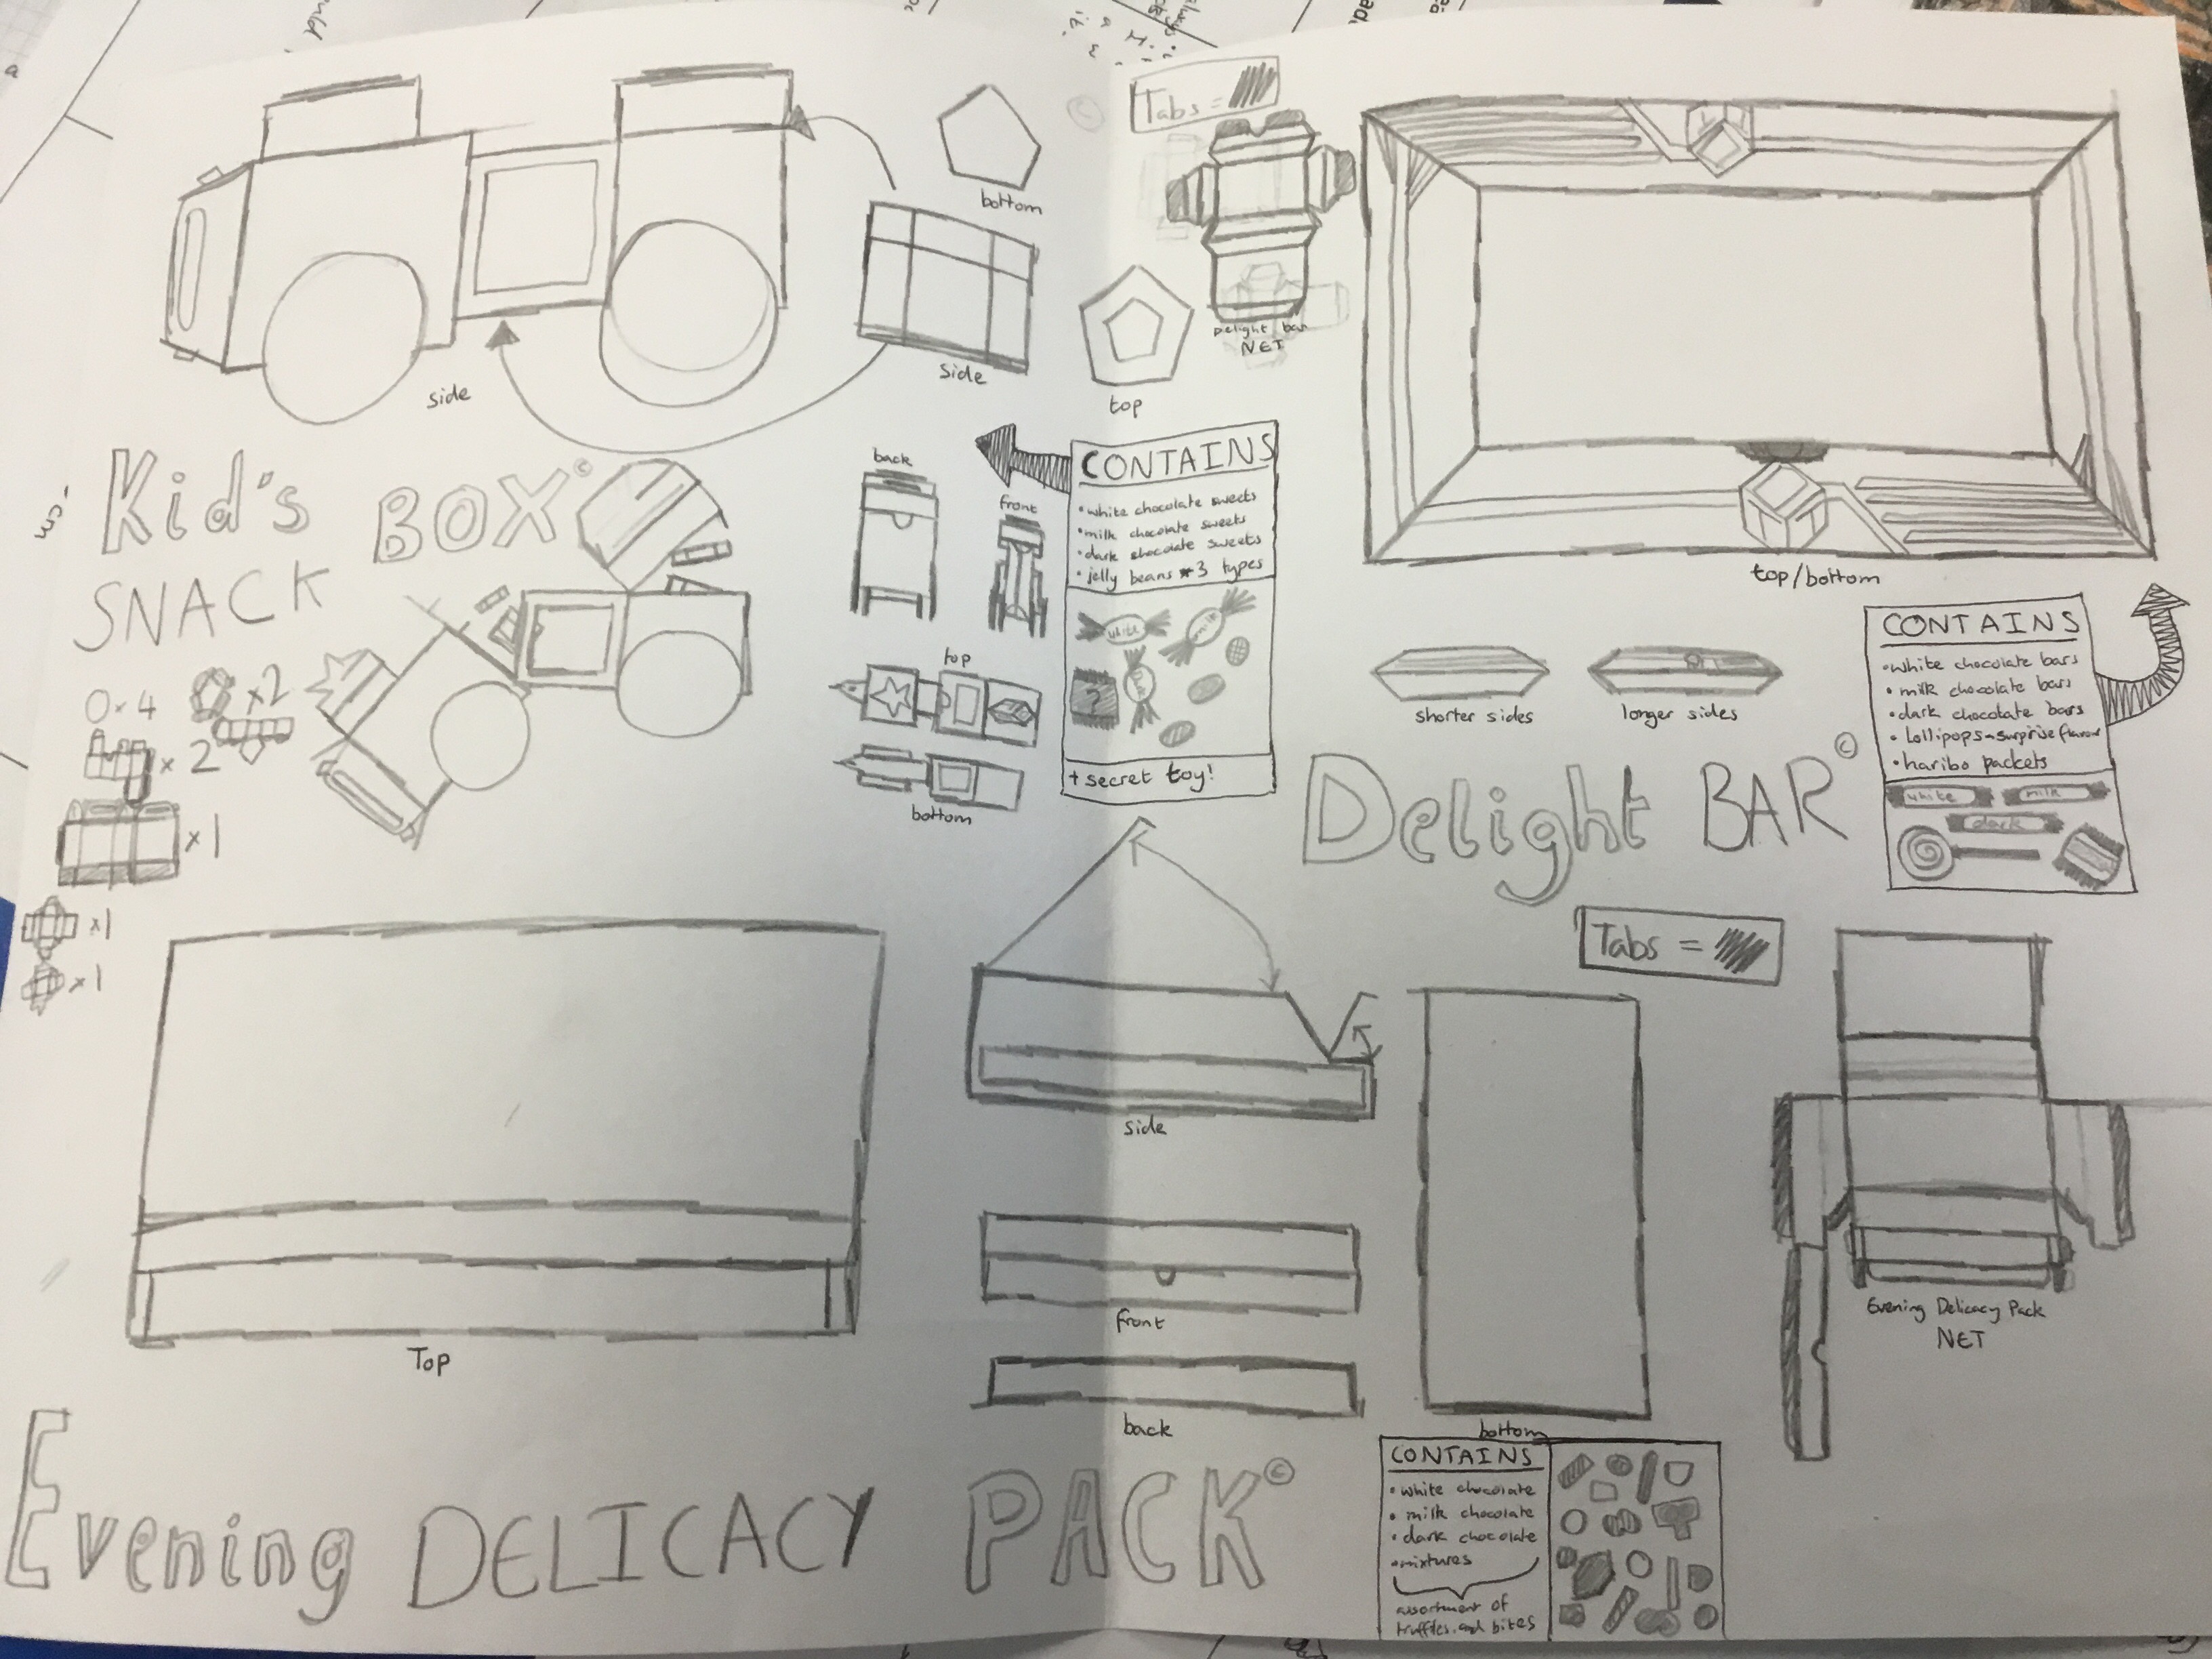 bottom
side
side
top
Kid's BOX©
SNACK
0×4
×2
×2
×1
×1
×1
back
front
top
bottom
CONTAINS
•white chocolate sweets
•milk chocolate sweets
•dark chocolate sweets
•jelly beans 3 types
white
milk
dark
?
+ secret toy!
Tabs =
Delight bar
NET
top/bottom
shorter sides
longer sides
Delight BAR©
CONTAINS
•white chocolate bars
•milk chocolate bars
•dark chocolate bars
•Lollipops-surprise flavour
•haribo packets
white
milk
dark
Tabs =
Top
side
front
back
bottom
Evening Delicacy Pack
NET
Evening DELICACY PACK©
CONTAINS
•white chocolate
•milk chocolate
•dark chocolate
•mixtures
assortment of
truffles and bites